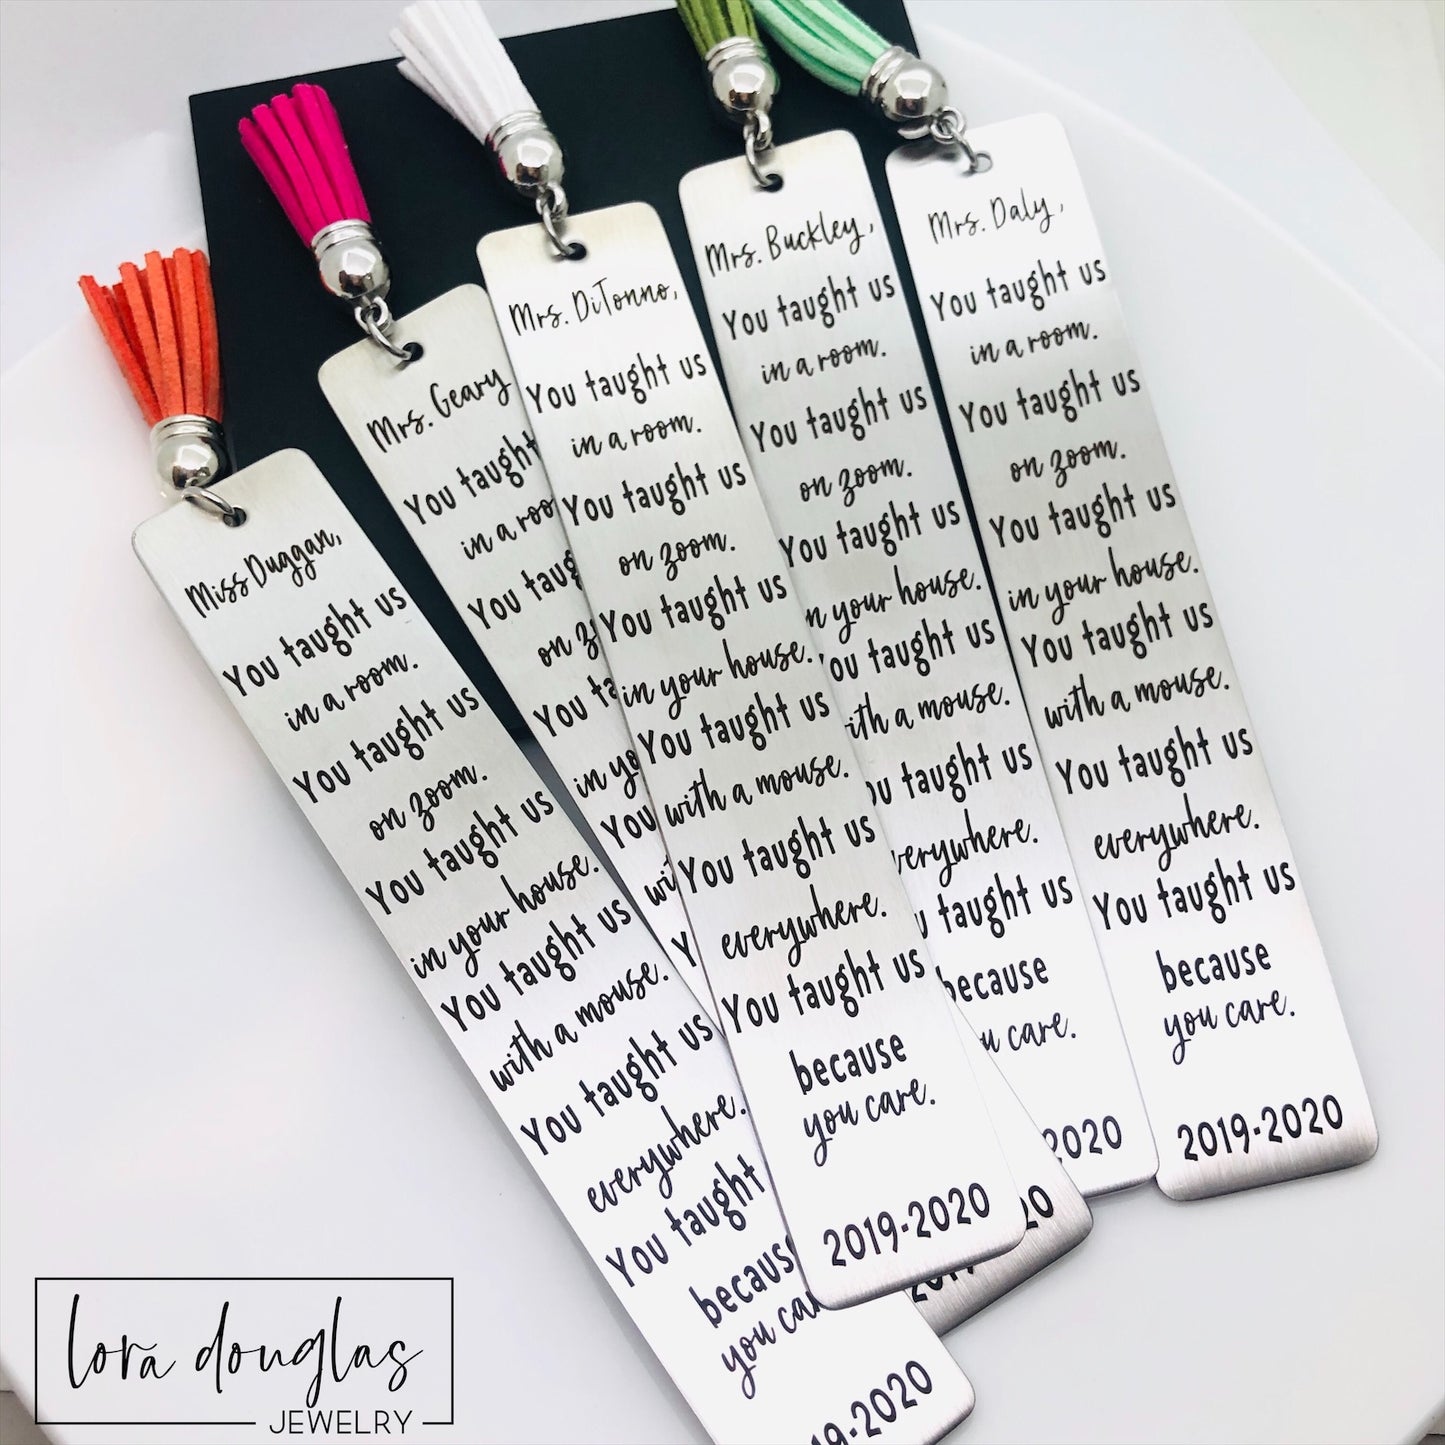 Miss Duggan,
You taught us
in a room.
You taught us
on zoom.
You taught us
in your house.
You taught us
with a mouse.
You taught us
everywhere.
You taught
because
you ca
19-2020
Mrs. Geary
You taught
in a roo
You taug
on z
You ta
in yo
You
wi
Y
20
Mrs. DiTonno,
You taught us
in a room.
You taught us
on zoom.
You taught us
in your house.
You taught us
with a mouse.
You taught us
everywhere.
You taught us
because
you care.
2019-2020
Mrs. Buckley,
You taught us
in a room.
You taught us
on zoom.
You taught us
in your house.
ou taught us
ith a mouse.
ou taught us
verywhere.
u taught us
because
u care.
2020
Mrs. Daly,
You taught us
in a room.
You taught us
on zoom.
You taught us
in your house.
You taught us
with a mouse.
You taught us
everywhere.
You taught us
because
you care.
2019-2020
lora douglas
JEWELRY